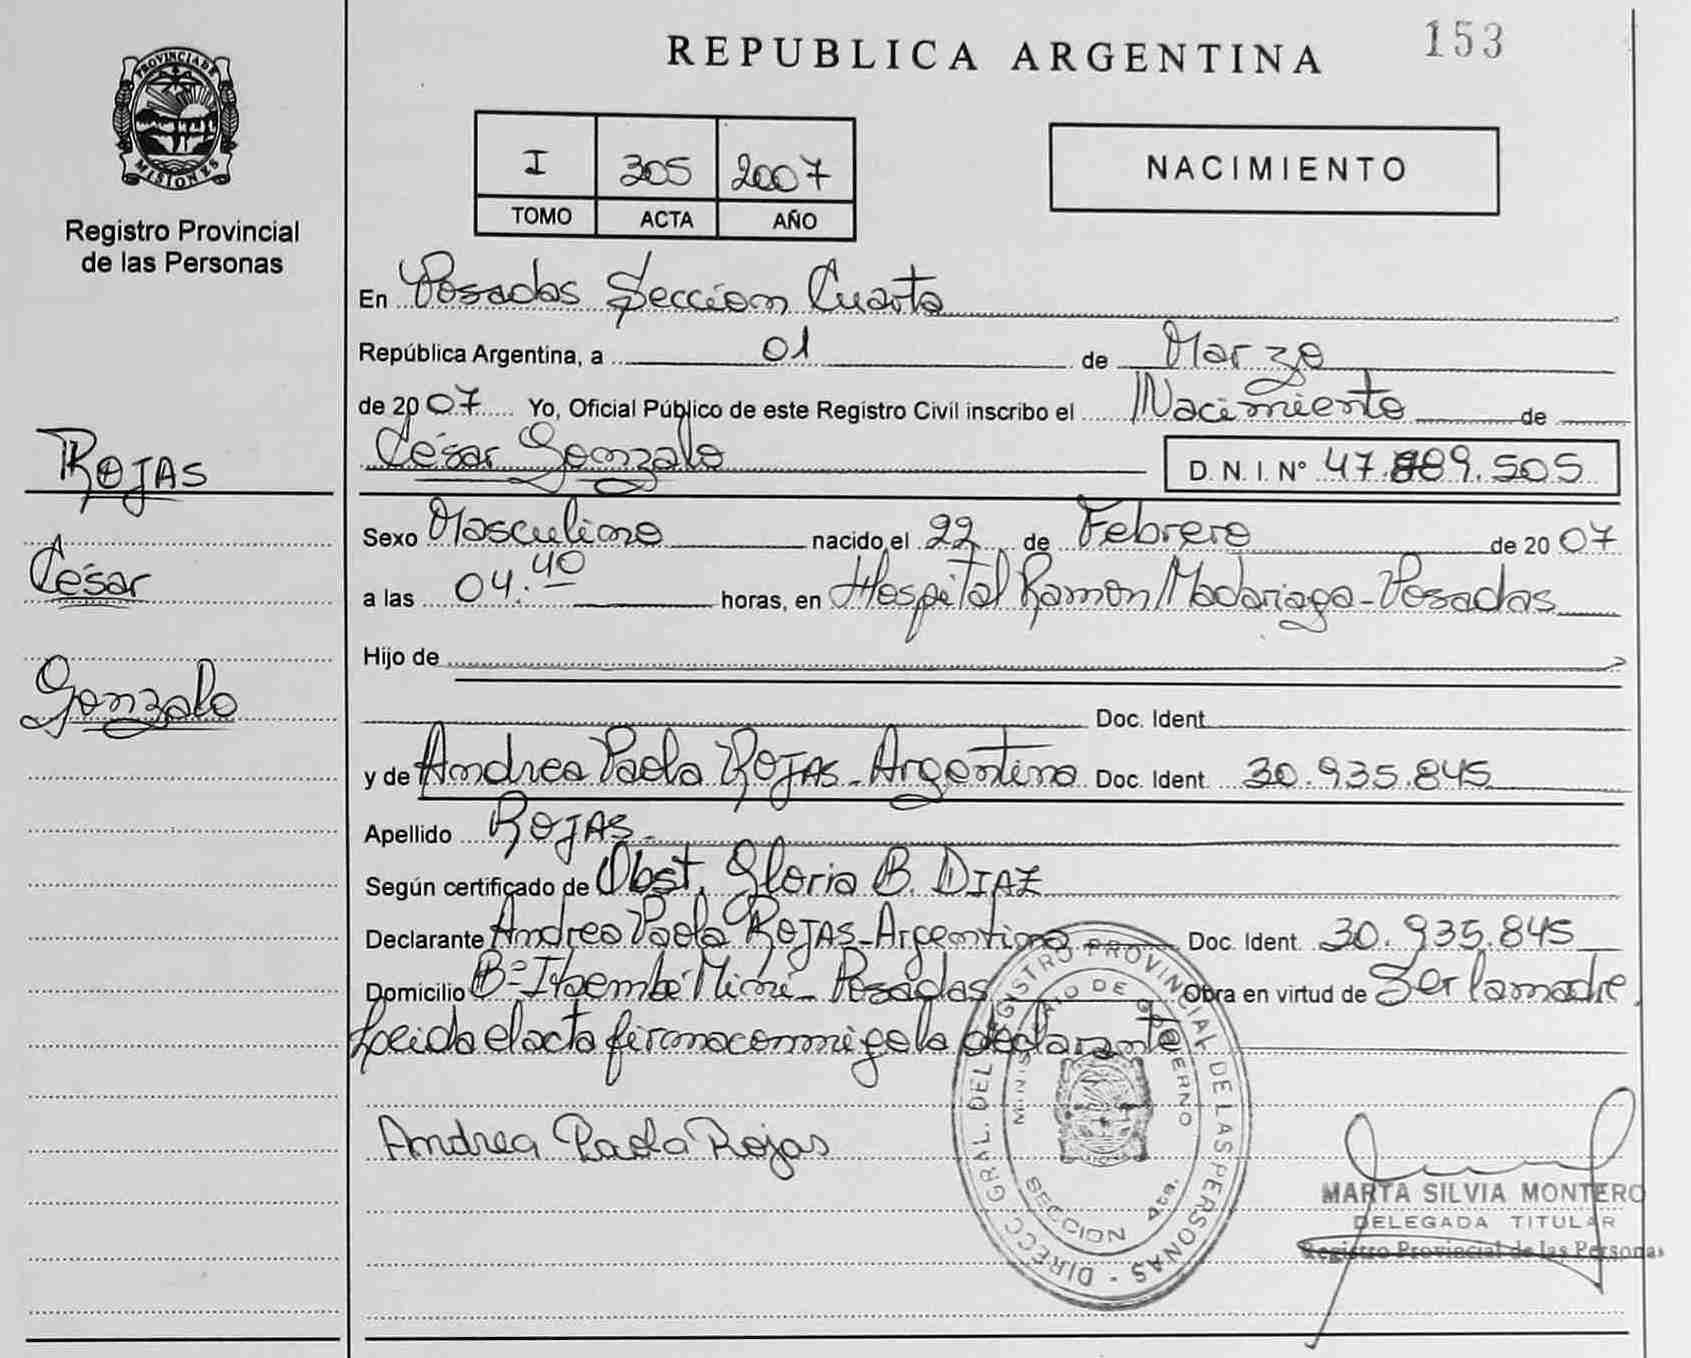 153
REPUBLICA ARGENTINA
PROVINCIA DE MISIONES
Registro Provincial
de las Personas
I 305 2007
TOMO ACTA AÑO
NACIMIENTO
En Posadas Sección Cuarta
República Argentina, a 01 de Marzo
de 2007 Yo, Oficial Público de este Registro Civil inscribo el Nacimiento de
César Gonzalo D.N.I. Nº 47.889.505
ROJAS
César
Gonzalo
Sexo Masculino nacido el 22 de Febrero de 2007
a las 04:40 horas, en Hospital Ramón Madariaga - Posadas
Hijo de
Doc. Ident.
y de Andrea Paola ROJAS - Argentina Doc. Ident. 30.935.845
Apellido ROJAS
Según certificado de Obst. Gloria B. DIAZ
Declarante Andrea Paola ROJAS - Argentina Doc. Ident 30.935.845
Domicilio Bº Itaembé Miní - Posadas Obra en virtud de Ser la madre.
Leida el acta firma conmigo la declarante
Andrea Paola Rojas
DIRECC. GRAL. DEL REGISTRO PROVINCIAL DE LAS PERSONAS
MINISTERIO DE GOBIERNO
SECCION 4ta.
MARTA SILVIA MONTERO
DELEGADA TITULAR
Registro Provincial de las Personas